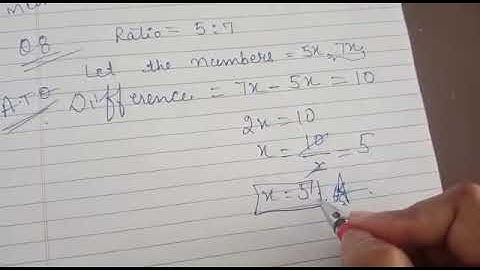 Q8 Ratio = 5:7
Let the numbers = 5x, 7x,
A.T.Q Difference = 7x - 5x = 10
2x = 10
x = 10/2 = 5
x = 5